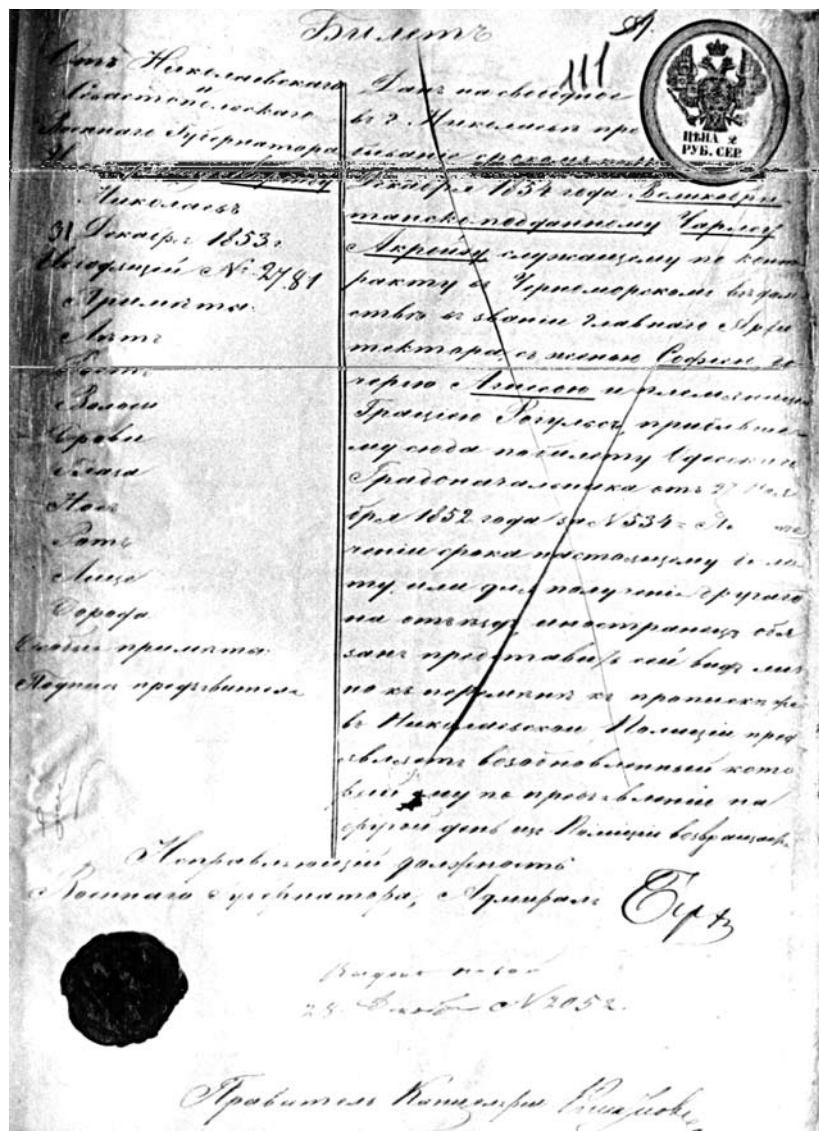 Билетъ
111
ЦѢНА 2
РУБ. СЕР.
Отъ Николаевскаго
и
Севастопольскаго
Военнаго Губернатора
Николаевъ
31 Декабря 1853 г.
Исходящій № 2781
Примѣты
Лѣтъ
Ростъ
Волосы
Брови
Глаза
Носъ
Ротъ
Лице
Борода
Особыя примѣты
Подпись предъявителя
Данъ на свободное
въ г. Николаевѣ про
живаніе срокомъ
Декабря 1854 года, Великобри-
танско-подданному Чарлсу
Акройду служащему по конт-
ракту въ Черноморскомъ вѣдом
ствѣ въ званіи Главнаго Архи
тектора, съ женою Софіею до
черью Алисою и племянницею
Граціею прибывше-
му сюда по билету Одесскаго
Градоначальника отъ 27 Нояб
бря 1852 года за № 534 = По исте
ченіи срока настоящему биле
ту, или для полученія другаго
на отъѣздъ, иностранецъ обя
занъ представить сей видъ лич
но къ перемѣнѣ къ прописке же
въ Николаевской Полиціи пред
являетъ возобновленный кото
рый ему по предъявленіи на
другой день изъ Полиціи возвращается
Исправляющій должность
Военнаго Губернатора, Адмиралъ Берхъ
Выданъ новый
28 Декабря № 2052.
Правитель Канцеляріи